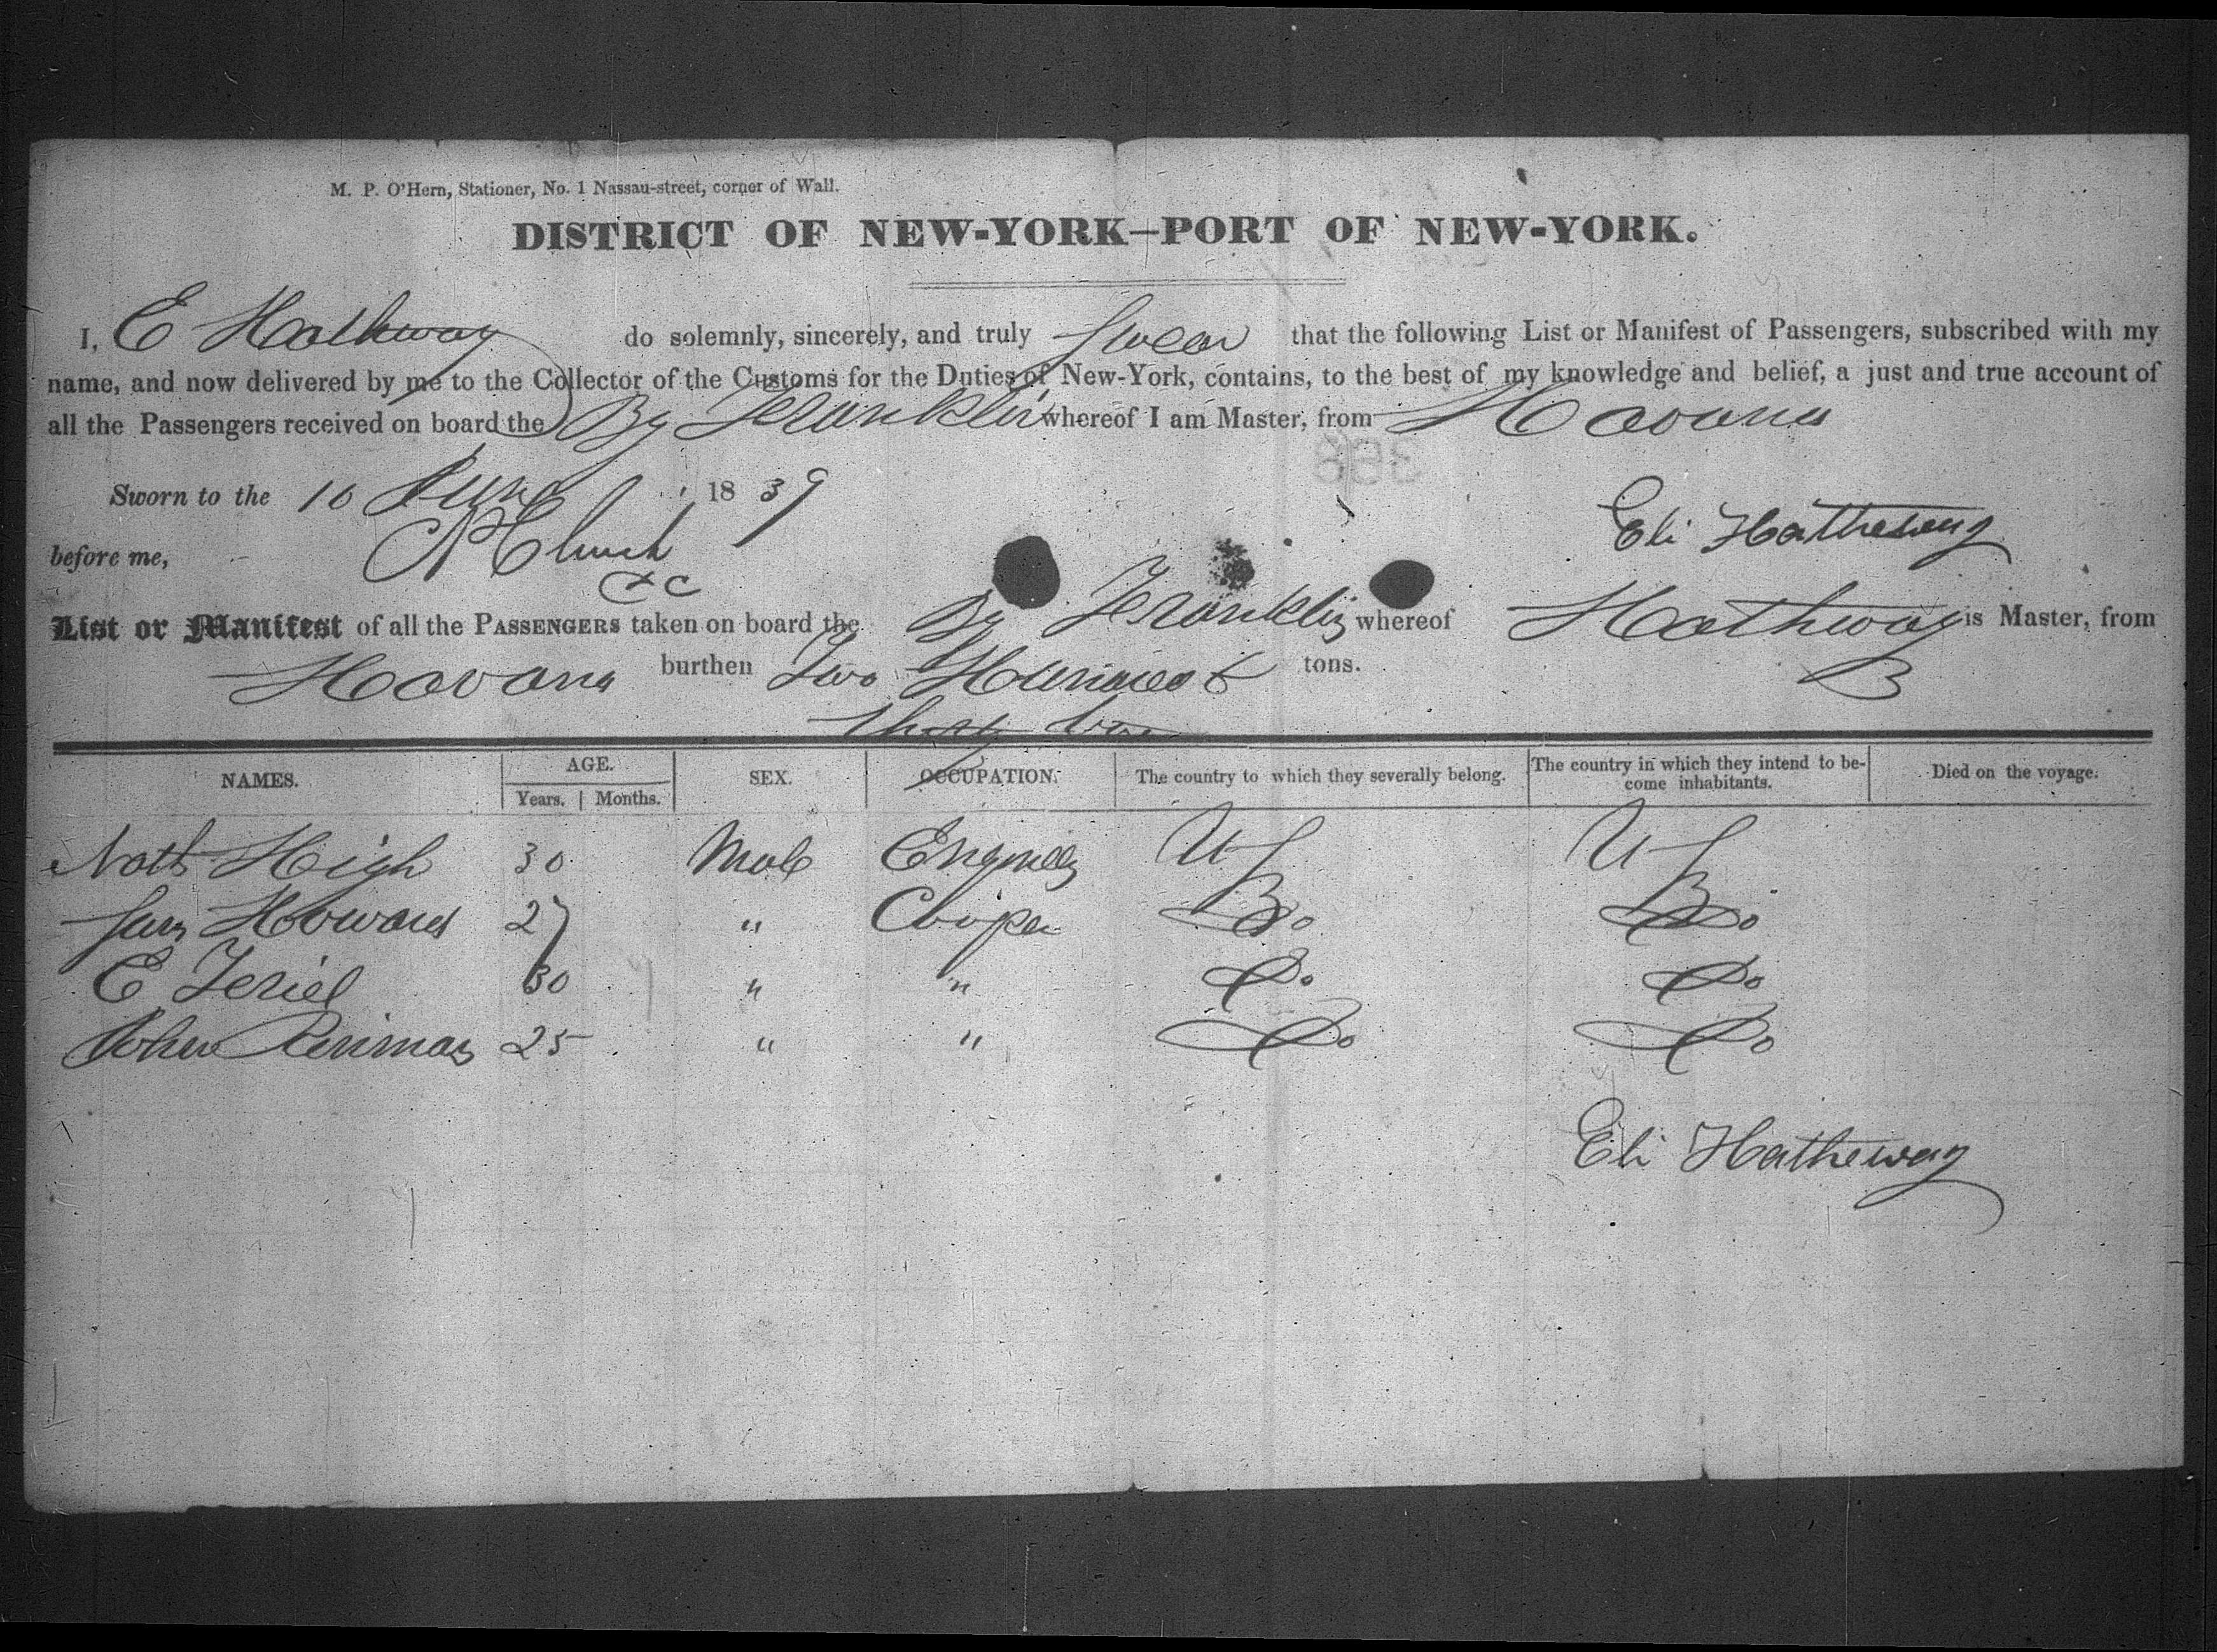 M. P. O'Hern, Stationer, No. 1 Nassau-street, corner of Wall.
DISTRICT OF NEW-YORK—PORT OF NEW-YORK.
I, E Hathway do solemnly, sincerely, and truly Swear that the following List or Manifest of Passengers, subscribed with my
name, and now delivered by me to the Collector of the Customs for the Duties of New-York, contains, to the best of my knowledge and belief, a just and true account of
all the Passengers received on board the Bg Franklin whereof I am Master, from Havana
Sworn to the 10 June 1839
Eli Hatheway
before me,
List or Manifest of all the PASSENGERS taken on board the Bg Franklin whereof Hathway is Master, from
Havana burthen Two Hundred & tons.
Thirty two
NAMES. AGE. SEX. OCCUPATION. The country to which they severally belong. The country in which they intend to be- Died on the voyage.
Years. Months. come inhabitants.
High 30 Male Engineer U S U S
Howard 27 " Cooper Do Do
E 30 " " Do Do
John 25 " " Do Do
Eli Hatheway